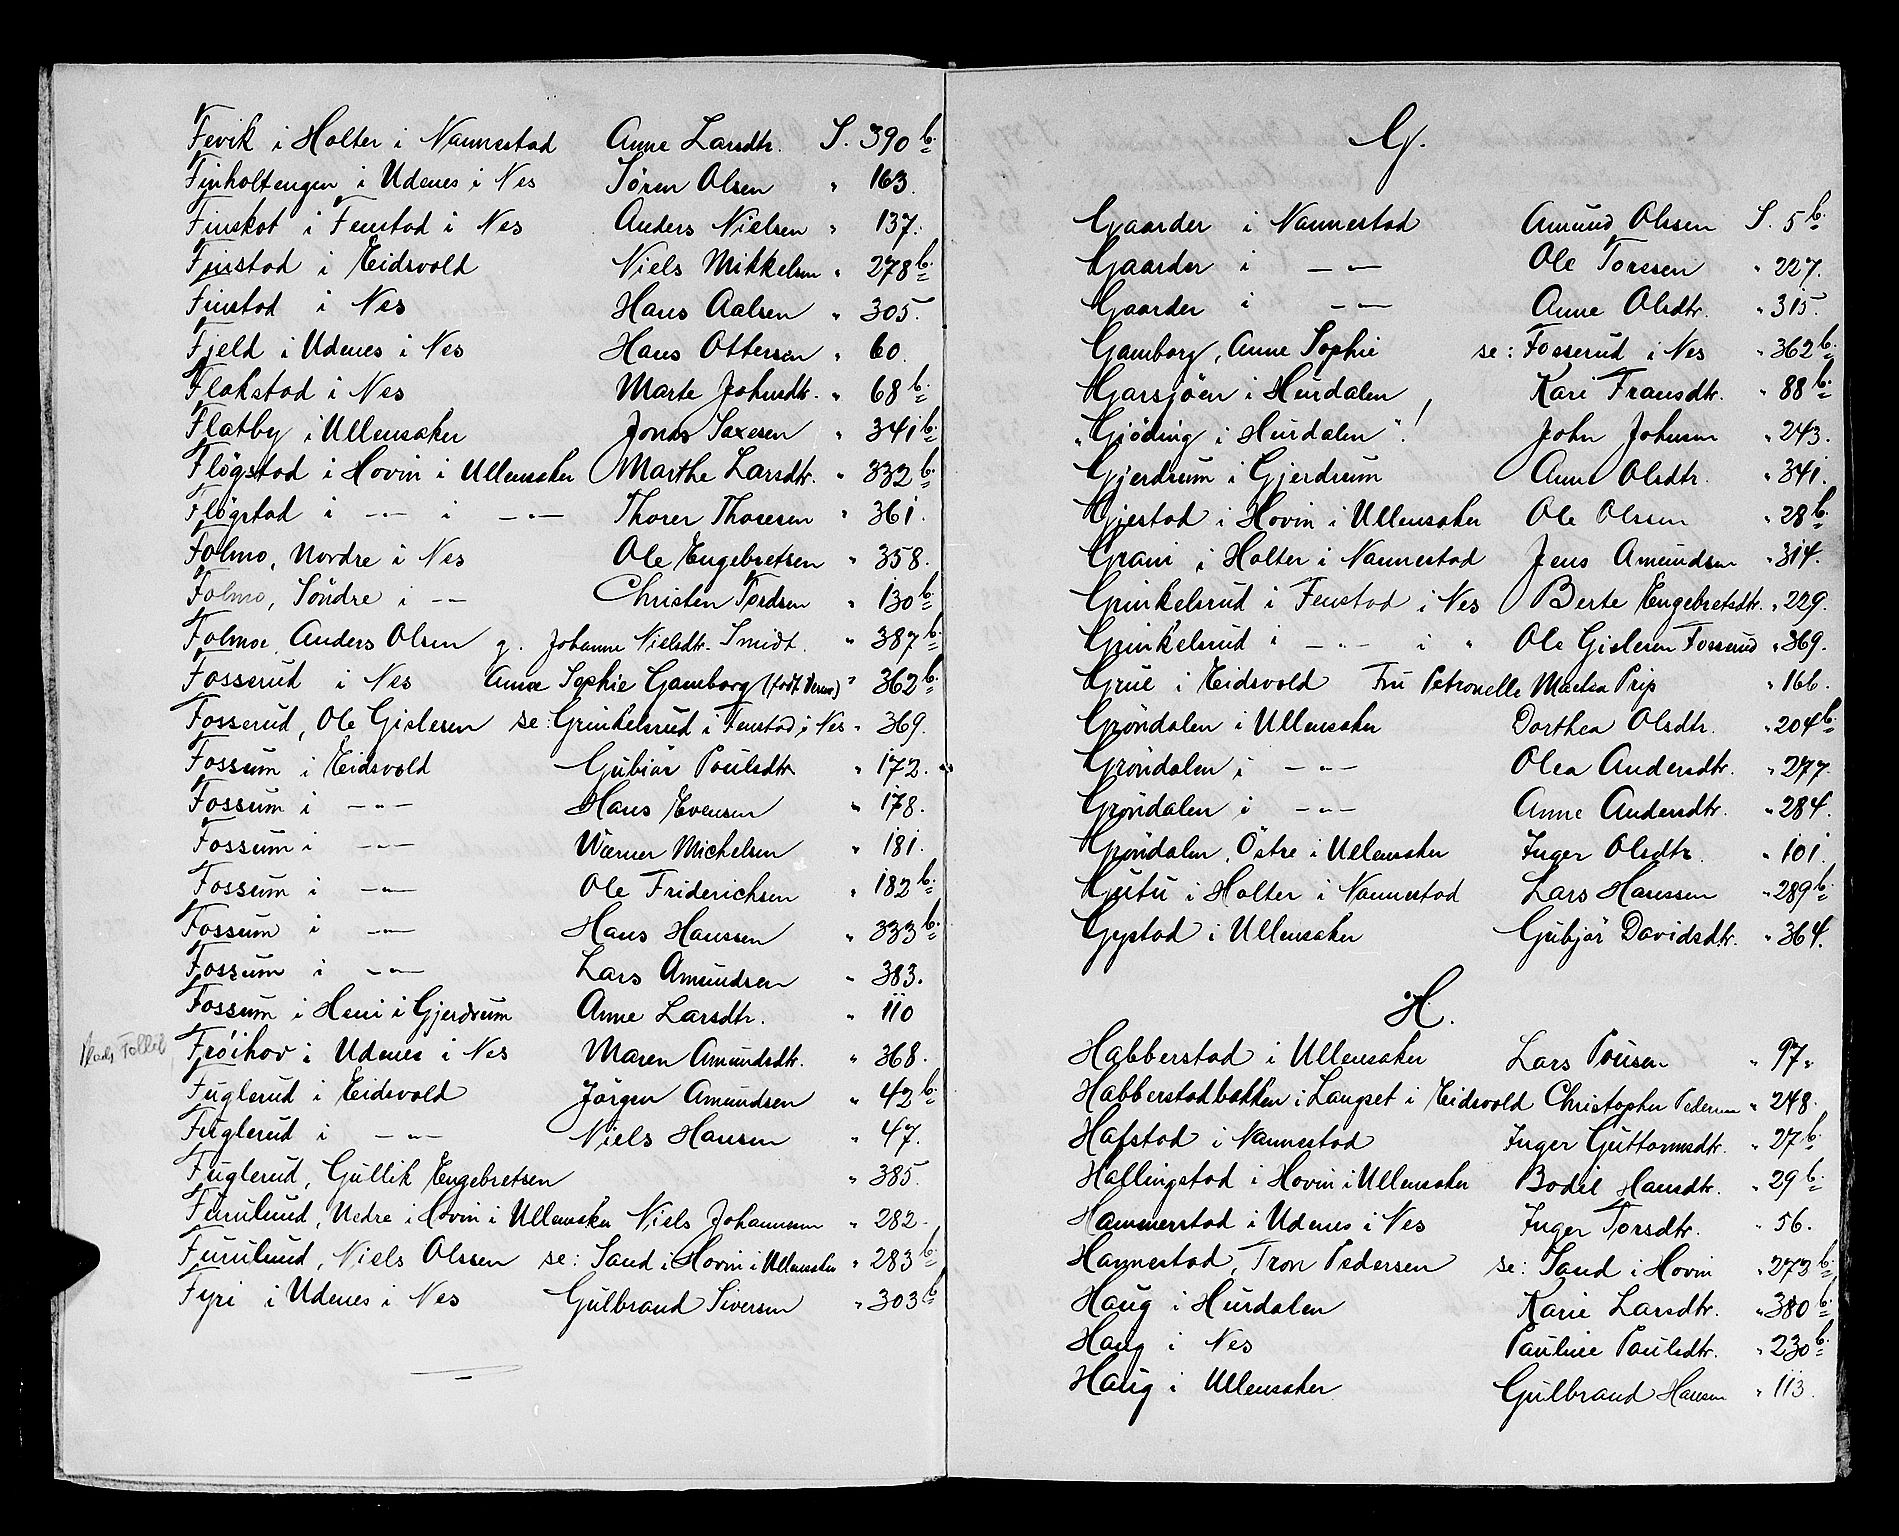 Fevik i Holter i Nannestad Anne Larsdtr. S. 390 b.
Finholtengen i Udenes i Nes Sören Olsen " 163.
Finskot i Fenstad i Nes Anders Nielsen " 137.
Finstad i Eidsvold Niels Mikkelsen " 278 b.
Finstad i Nes Hans Aalsen " 305.
Fjeld i Udenes i Nes Hans Ottersen " 60.
Flakstad i Nes Marte Johnsdtr. " 68 b.
Flatby i Ullensaker Jonas Saxesen " 341 b.
Flögstad i Hovin i Ullensaker Marthe Larsdtr. " 332 b.
Flögstad i —"— i —"— Thorer Thoresen " 361.
Folmo, Nordre i Nes Ole Engebretsen " 358.
Folmo, Söndre i —"— Christen Tordsen " 130 b.
Folmoe, Anders Olsen g. Johanne Nielsdtr. Smidt. " 387 b.
Fosserud i Nes Anne Sophie Gamborg (født Derum) " 362 b.
Fosserud, Ole Gislesen se: Grinkelsrud i Fenstad i Nes " 369.
Fossum i Eidsvold Gubiör Poulsdtr " 172.
Fossum i —"— Hans Evensen " 178.
Fossum i —"— Wærner Michelsen " 181.
Fossum i —"— Ole Friderichsen " 182 b.
Fossum i —"— Hans Hanssen " 333 b.
Fossum i —"— Lars Amundsen " 383.
Fossum i Heni i Gjerdrum Anne Larsdtr. " 110
Frøihov i Udenes i Nes Maren Amundsdtr. " 368.
Fuglerud i Eidsvold Jörgen Amundsen " 42 b.
Fuglerud i —"— Niels Hansen " 47.
Fuglerud, Gullik Engebretsen " 385.
Furulund, Nedre i Hovin i Ullensaker Niels Johannesen " 282.
Furulund, Niels Olssen se: Sand i Hovin i Ullensaker " 283 b.
Fyri i Udenes i Nes Gulbrand Siversen " 303 b
G.
Gaarder i Nannestad Amund Olssen S. 5 b.
Gaarder i —"— Ole Toresen " 227.
Gaarder i —"— Anne Olsdtr. " 315.
Gamborg, Anne Sophie se: Fosserud i Nes " 362 b.
Garsjöen i Hurdalen Kari Fransdtr. " 88 b.
"Gjöding i Hurdalen"! John Johnsen " 243.
Gjerdrum i Gjerdrum Anne Olsdtr. " 341.
Gjestad i Hovin i Ullensaker Ole Olssen " 28 b.
Grani i Holter i Nannestad Jens Amundsen " 314.
Grinkelsrud i Fenstad i Nes Berte Engebretsdtr. " 229.
Grinkelsrud i —"— i " Ole Gislesen Fosserud " 369.
Grue i Eidsvold Fru Petronelle Maelsa Prip " 166.
Gröndalen i Ullensaker Dorthea Olsdtr. " 204 b.
Gröndalen i —"— Olea Andersdtr. " 277.
Gröndalen i —"— Anne Andersdtr. " 284.
Gröndalen, Östre i Ullensaker Inger Olsdtr. " 101.
Gutu i Holter i Nannestad Lars Hanssen " 289 b.
Gystad i Ullensaker Gubjör Davidsdtr. " 364.
H.
Habberstad i Ullensaker Lars Pousen " 97.
Habberstadbakken i Langset i Eidsvold Christopher Pedersen " 248.
Hafstad i Nannestad Inger Guttormsdtr. " 27 b.
Hallingstad i Hovin i Ullensaker Bodil Hansdtr. " 29 b.
Hammerstad i Udenes i Nes Inger Torsdtr. " 56.
Hannestad, Tron Pedersen se: Sand i Hovin " 273 b.
Haug i Hurdalen Karie Larsdtr. " 380 b.
Haug i Nes Pauline Paulsdtr. " 230 b.
Haug i Ullensaker Gulbrand Hansen " 113.